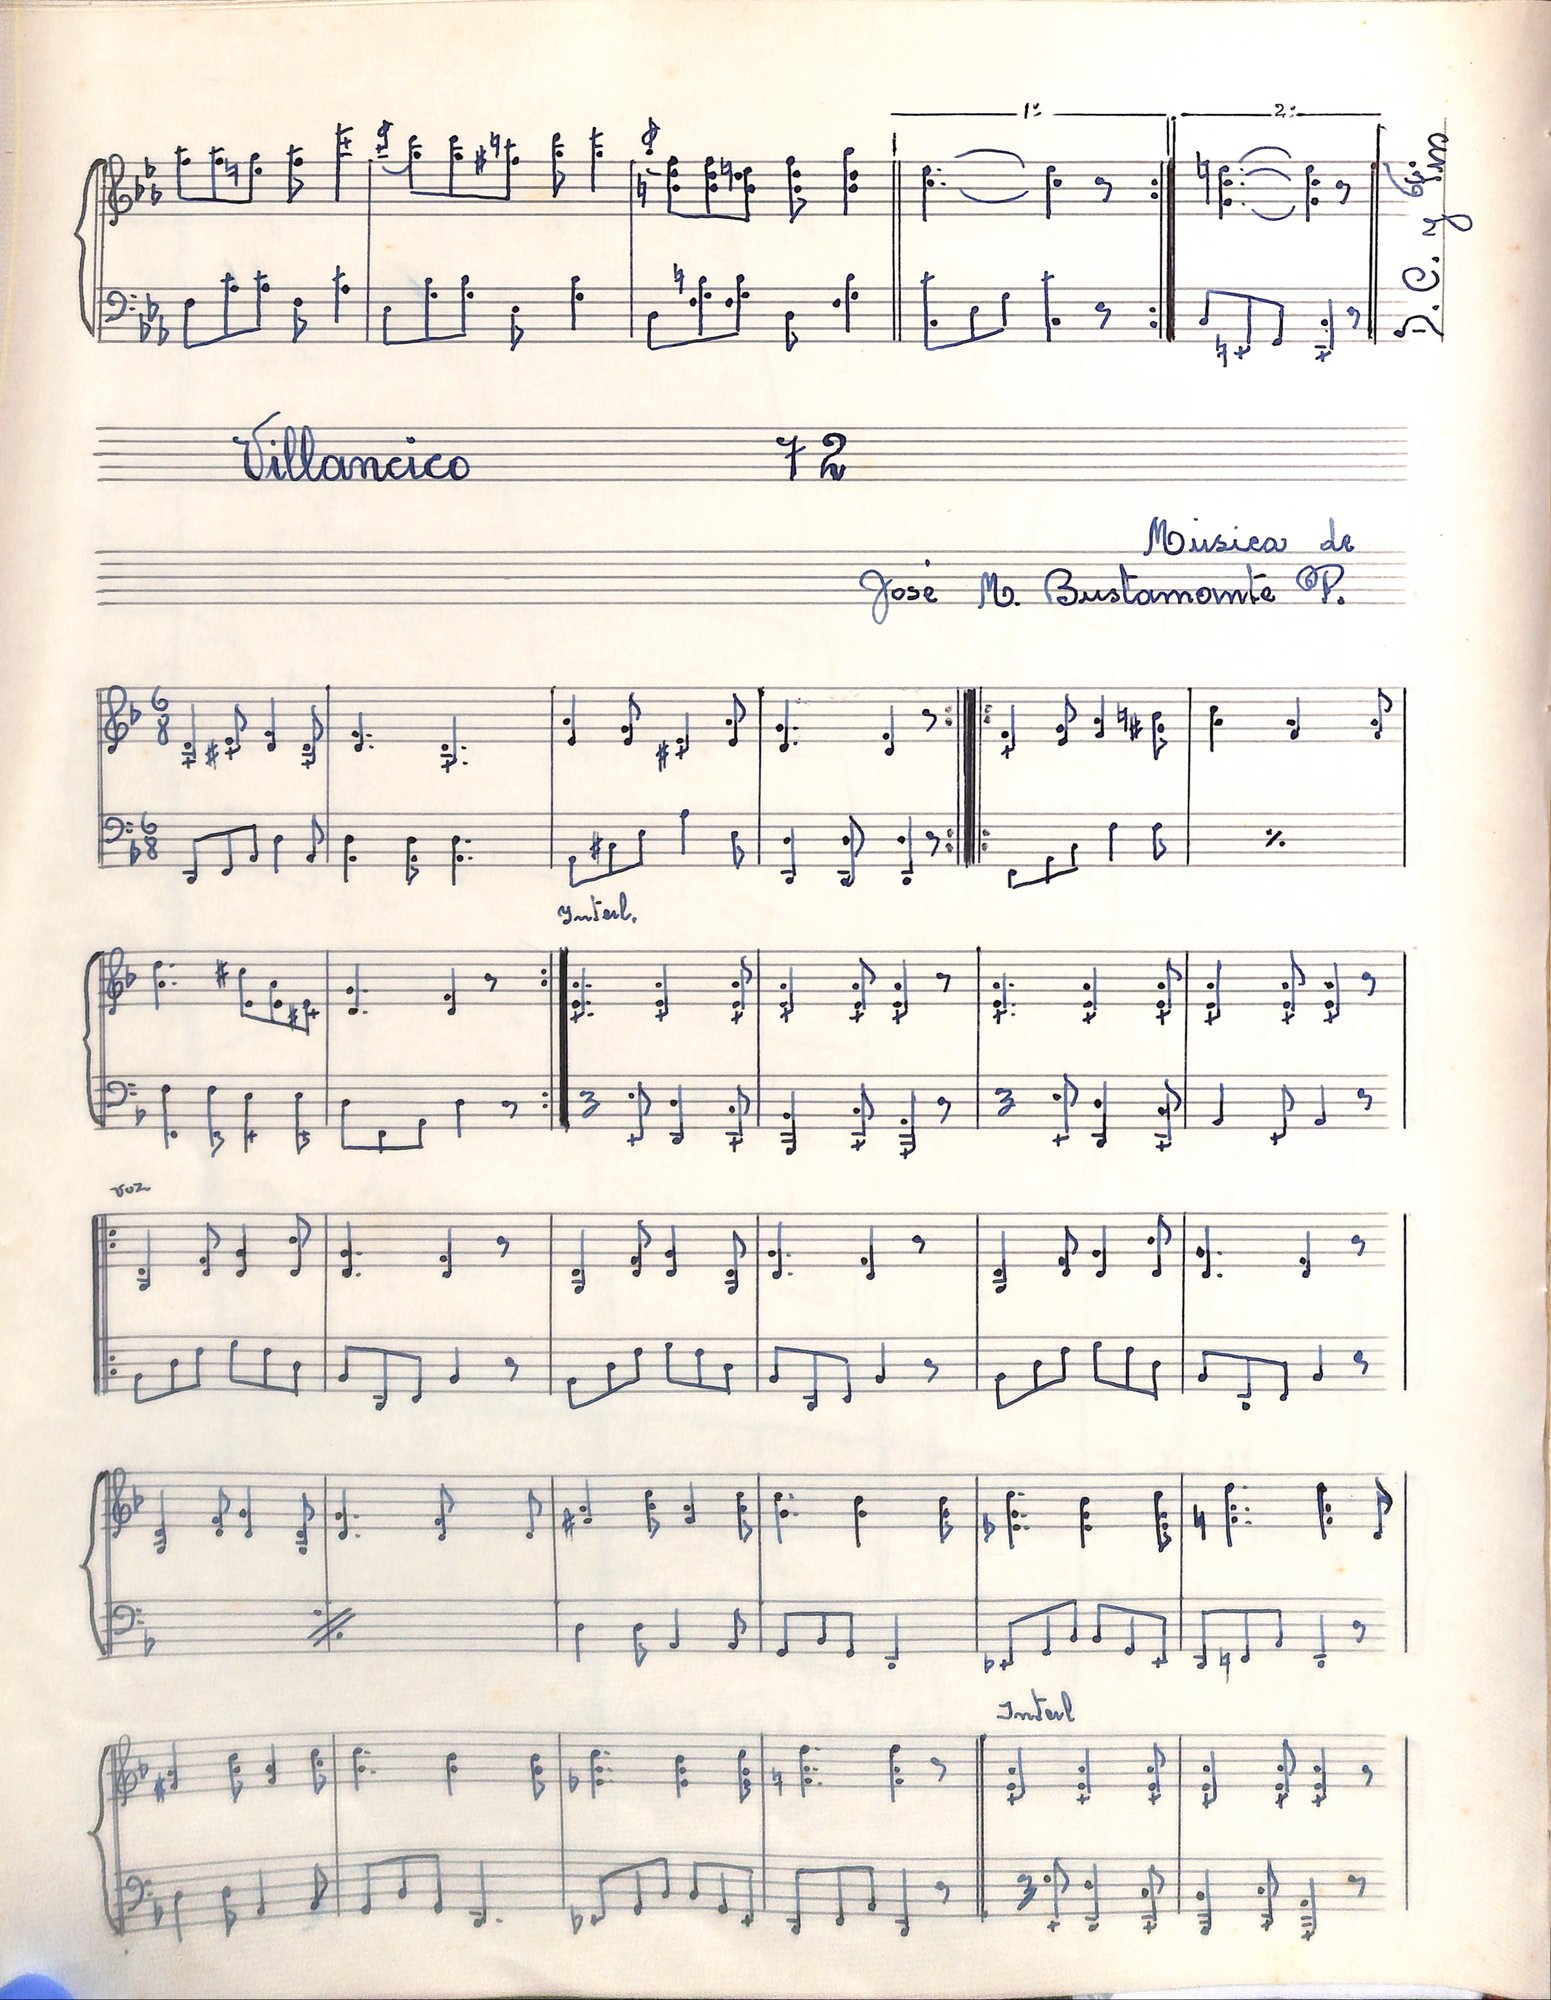 1ª
2ª
D.C. y Fin
Villancico 72
Música de
José M. Bustamante P.
6
8
6
8
Interl.
voz
Interl